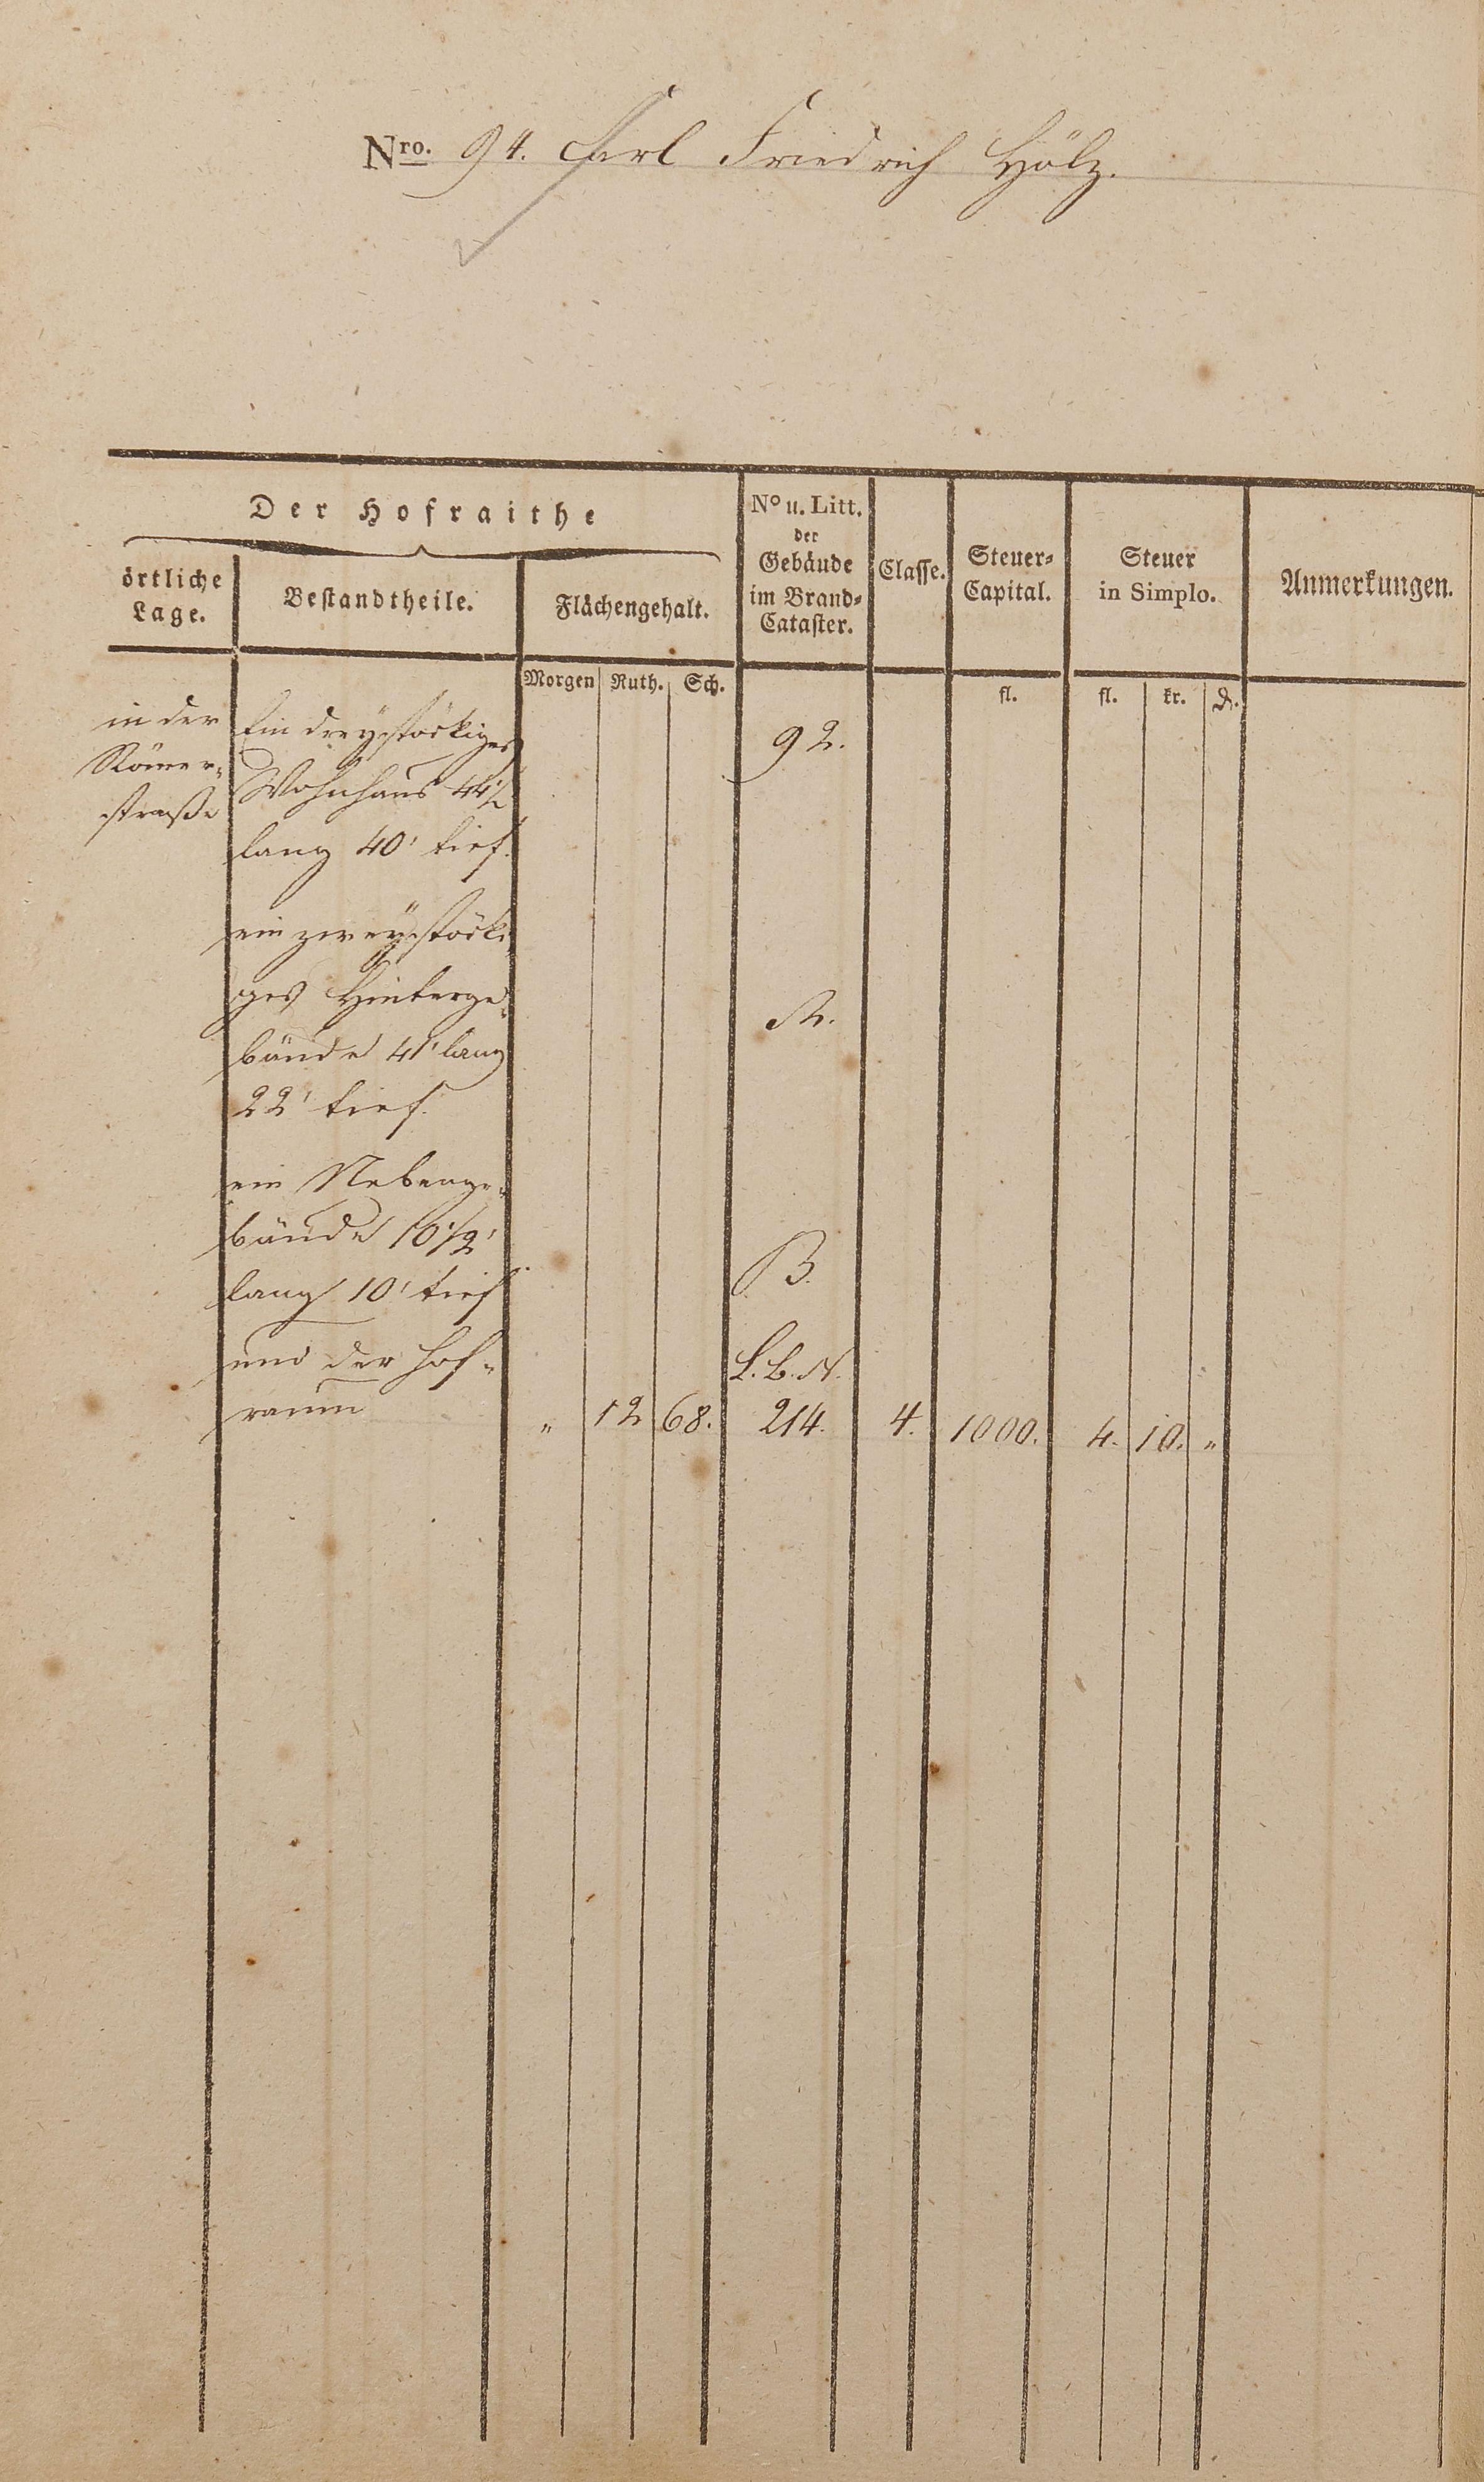 Nro. 94. Carl Friedrich Hölz.
Der Hofraithe
örtliche
Lage.
Bestandtheile.
Flächengehalt.
No u. Litt.
der
Gebäude
im Brand-
Cataster.
Classe.
Steuer-
Capital.
Steuer
in Simplo.
Anmerkungen.
Morgen Ruth. Sch.
fl.
fl. kr. ₰.
in der
Römer-
straße
Ein dreystöckiges
Wohnhaus 44½'
lang 40' tief.
92.
ein zweystöcki-
ges Hinterge-
bäude 41' lang
22' tief.
A.
ein Nebenge-
bäude 10½'
lang 10' tief
B.
und der Hof-
raum
L.B.N.
" 12 68. 214. 4. 1000. 4. 10. "